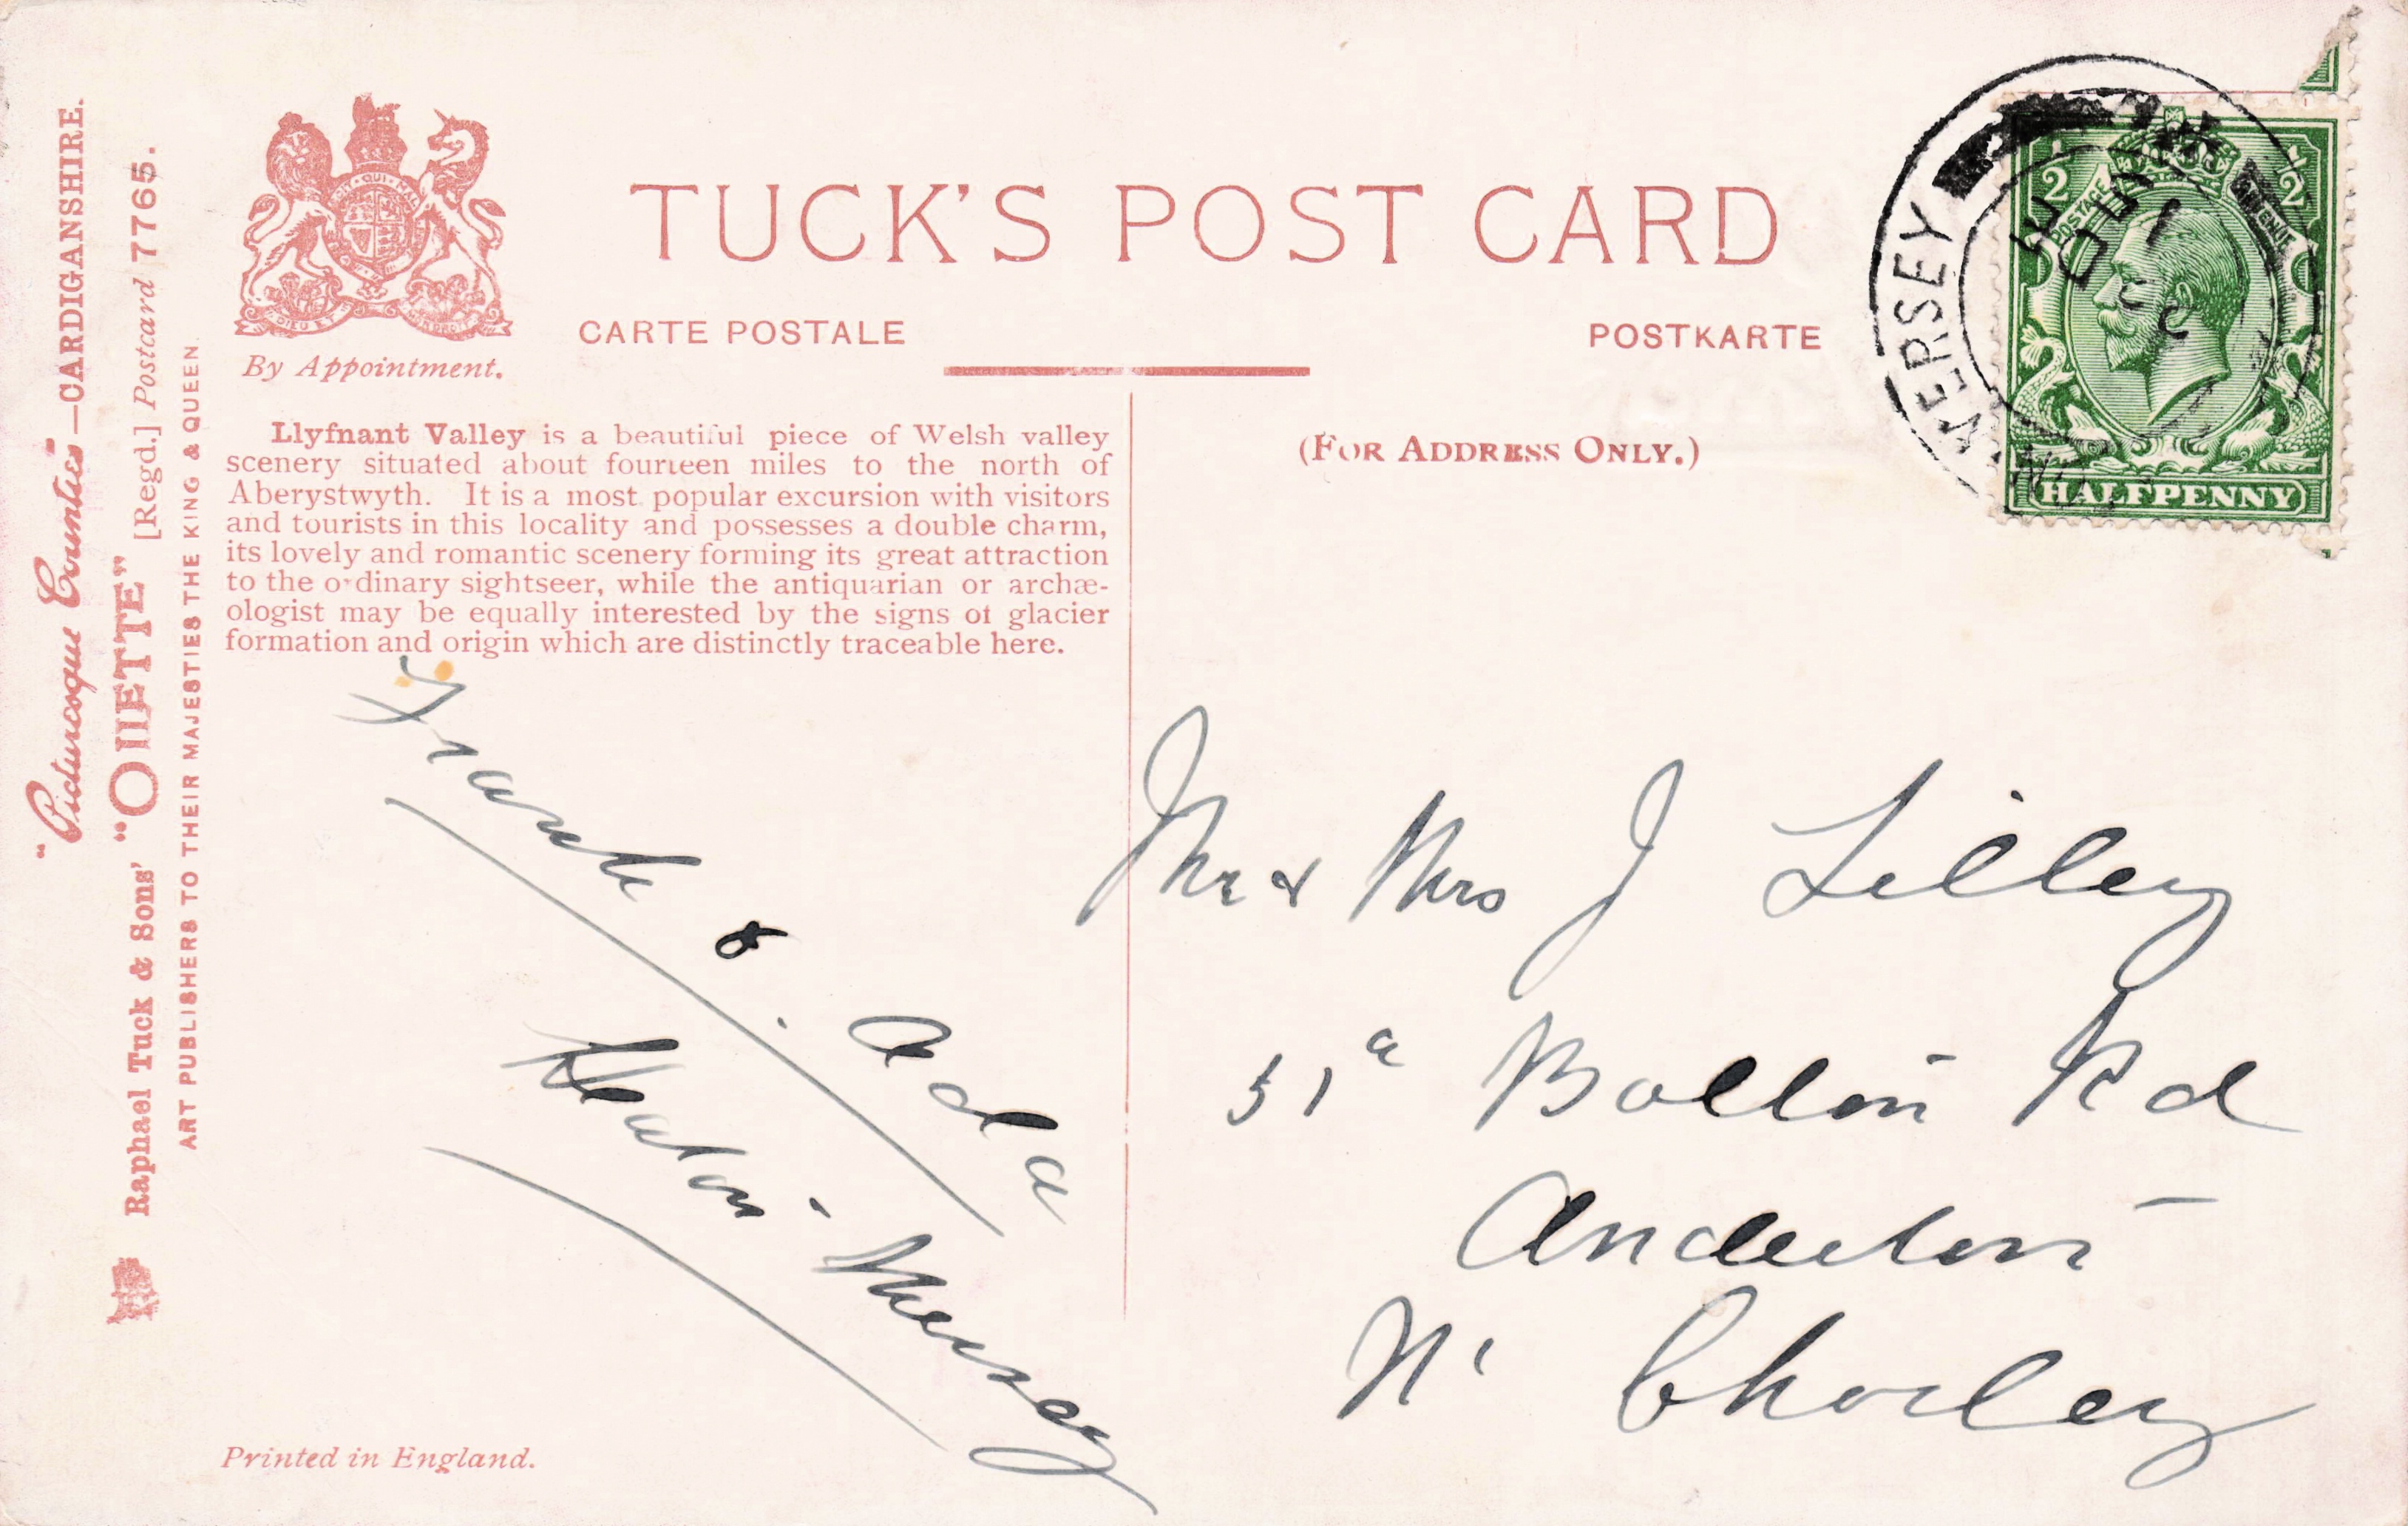 "Picturesque Counties"—CARDIGANSHIRE.
Raphael Tuck & Sons' "OILETTE" [Regd.] Postcard 7765.
ART PUBLISHERS TO THEIR MAJESTIES THE KING & QUEEN.
By Appointment.
TUCK'S POST CARD
CARTE POSTALE
POSTKARTE
Llyfnant Valley is a beautiful piece of Welsh valley
scenery situated about fourteen miles to the north of
Aberystwyth. It is a most popular excursion with visitors
and tourists in this locality and possesses a double charm,
its lovely and romantic scenery forming its great attraction
to the ordinary sightseer, while the antiquarian or archæ-
ologist may be equally interested by the signs of glacier
formation and origin which are distinctly traceable here.
(FOR ADDRESS ONLY.)
POSTAGE REVENUE
1/2 1/2
HALFPENNY
MERSEY
Frank & Ada
Heaton Mersey
Mr & Mrs J Lilley
51a Bolton Rd
Anderton
Nr Chorley
Printed in England.